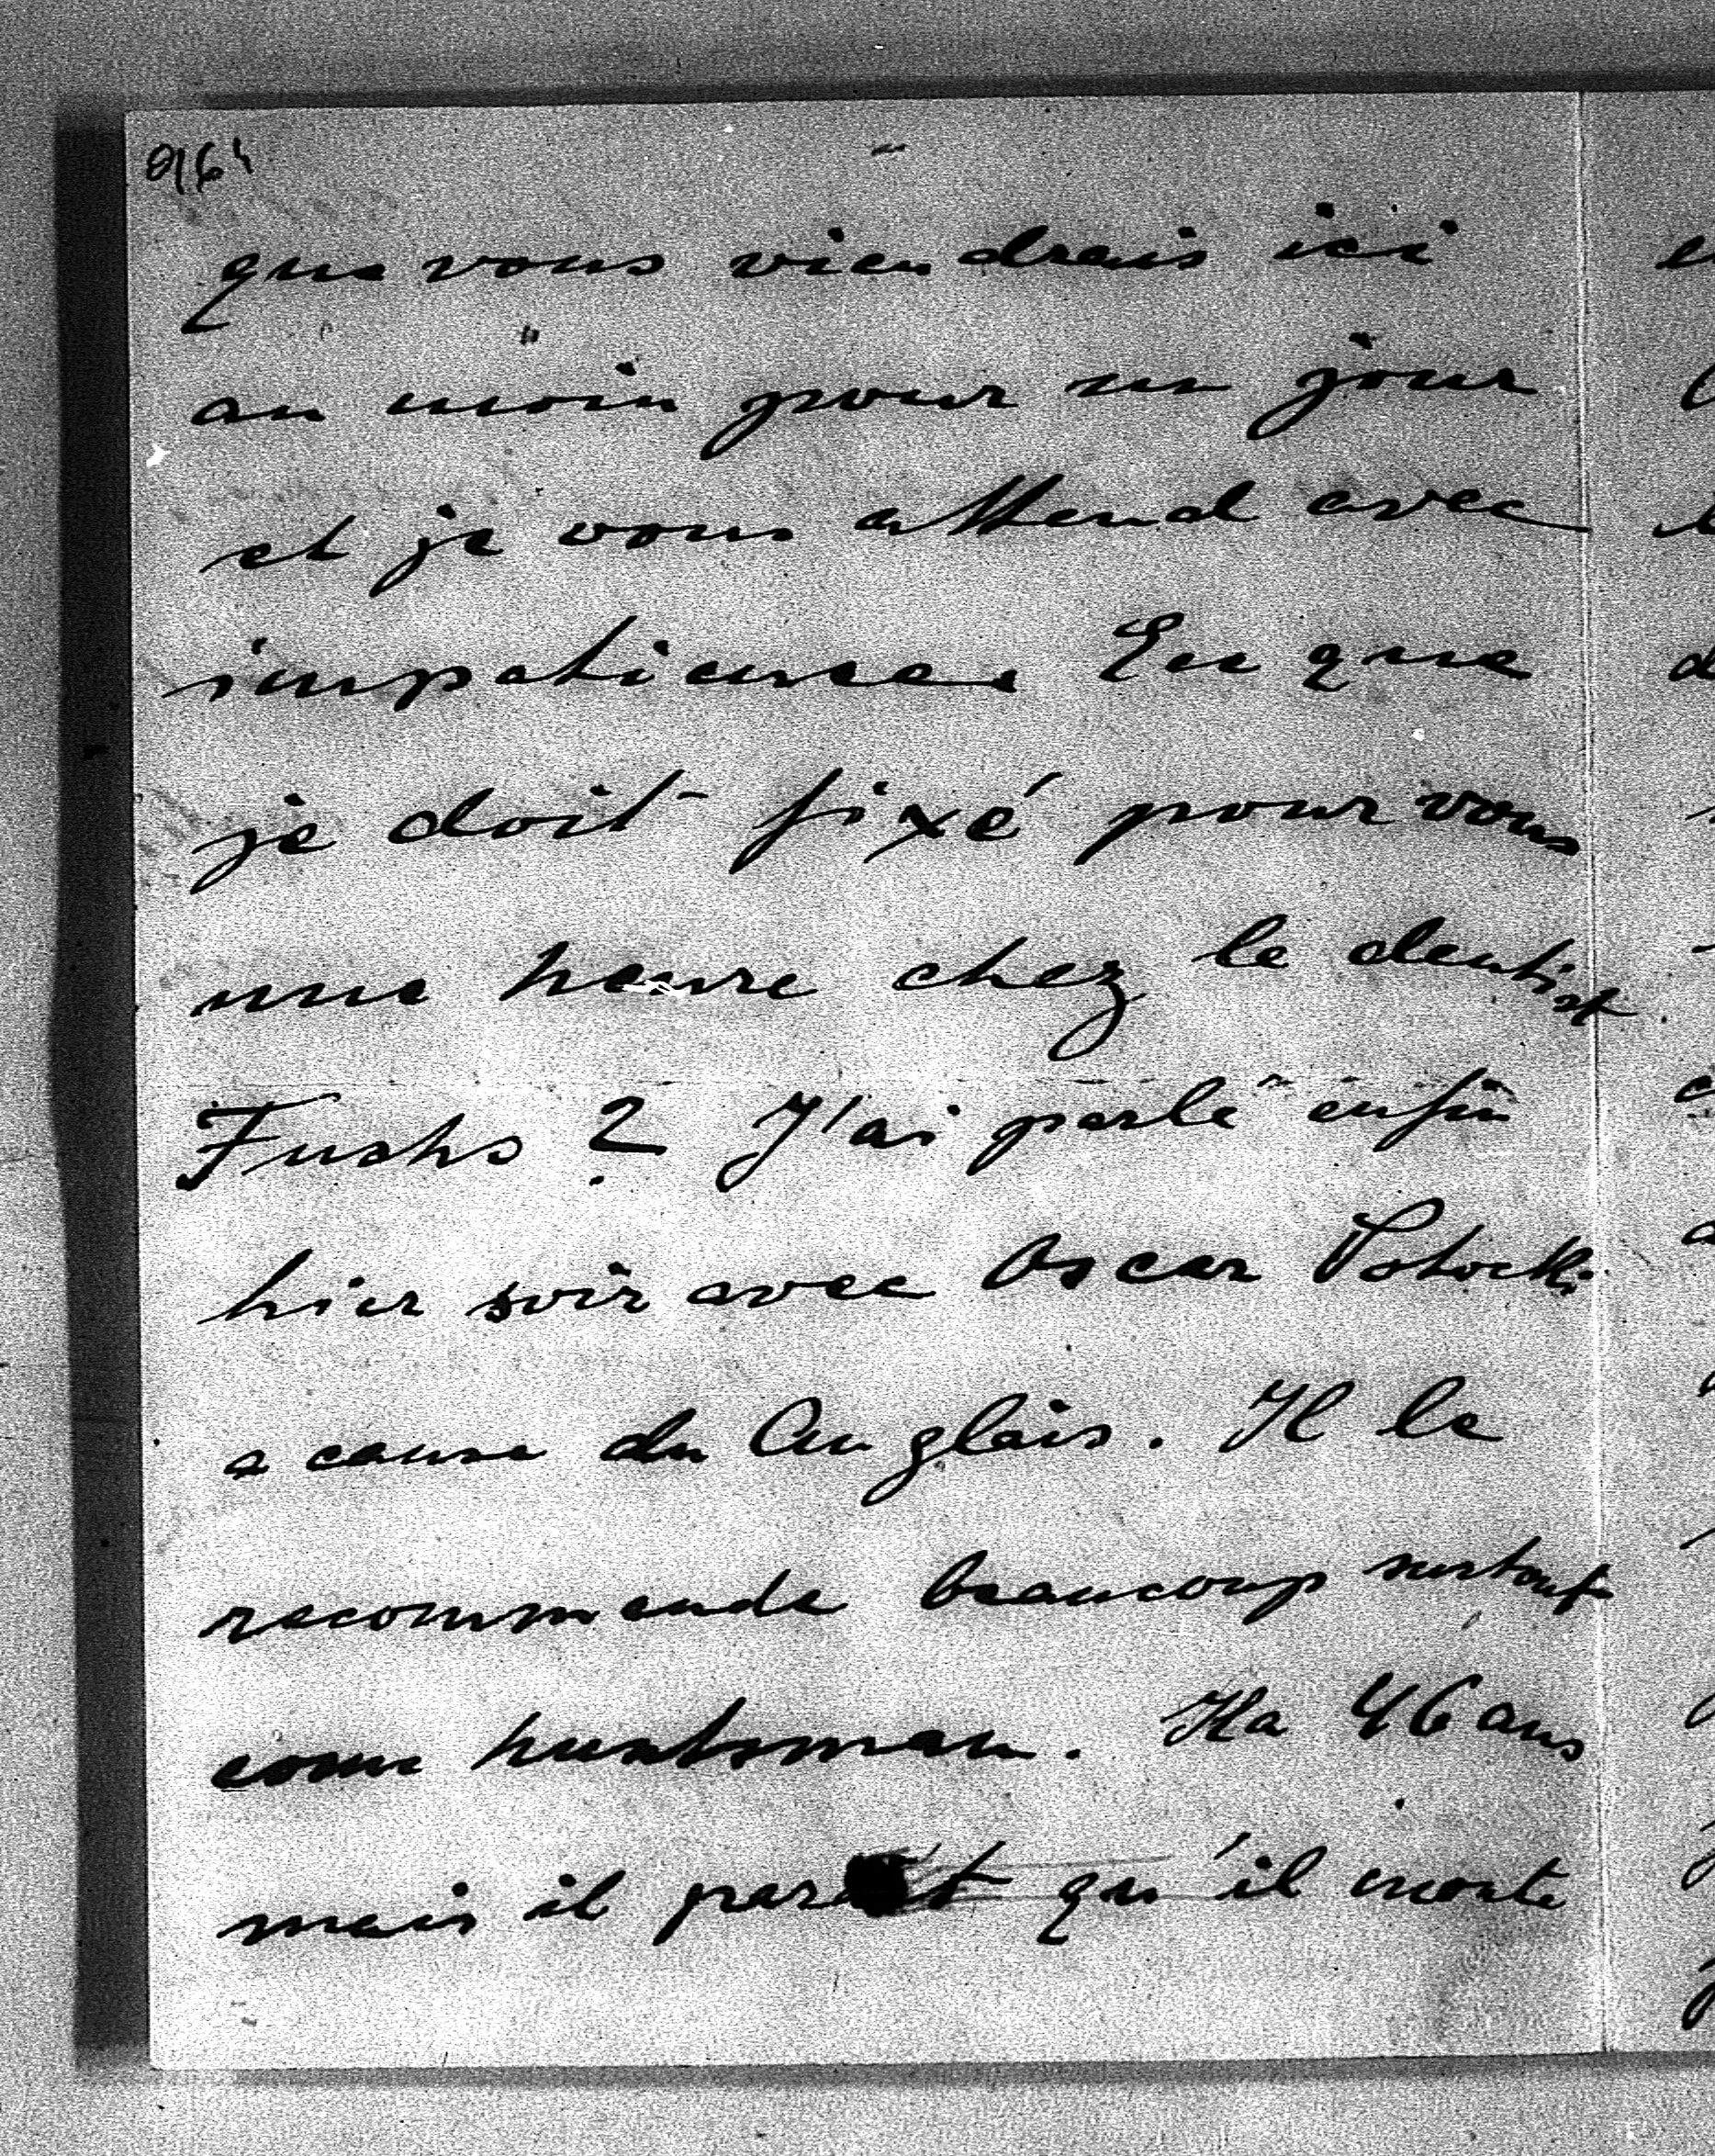 que vous viendrais ici
au moin pour un jour
et je vous attend avec
impatience. Est que
je doit fixé pour vous
une heure chez le dentist
Fuchs ? J'ai parlé enfin
hier soir avec Oscar Potocki
a cause du Anglais. Il le
recommende beaucoup surtout
come huntsman. Il a 46 ans
mais il parait qu'il monte